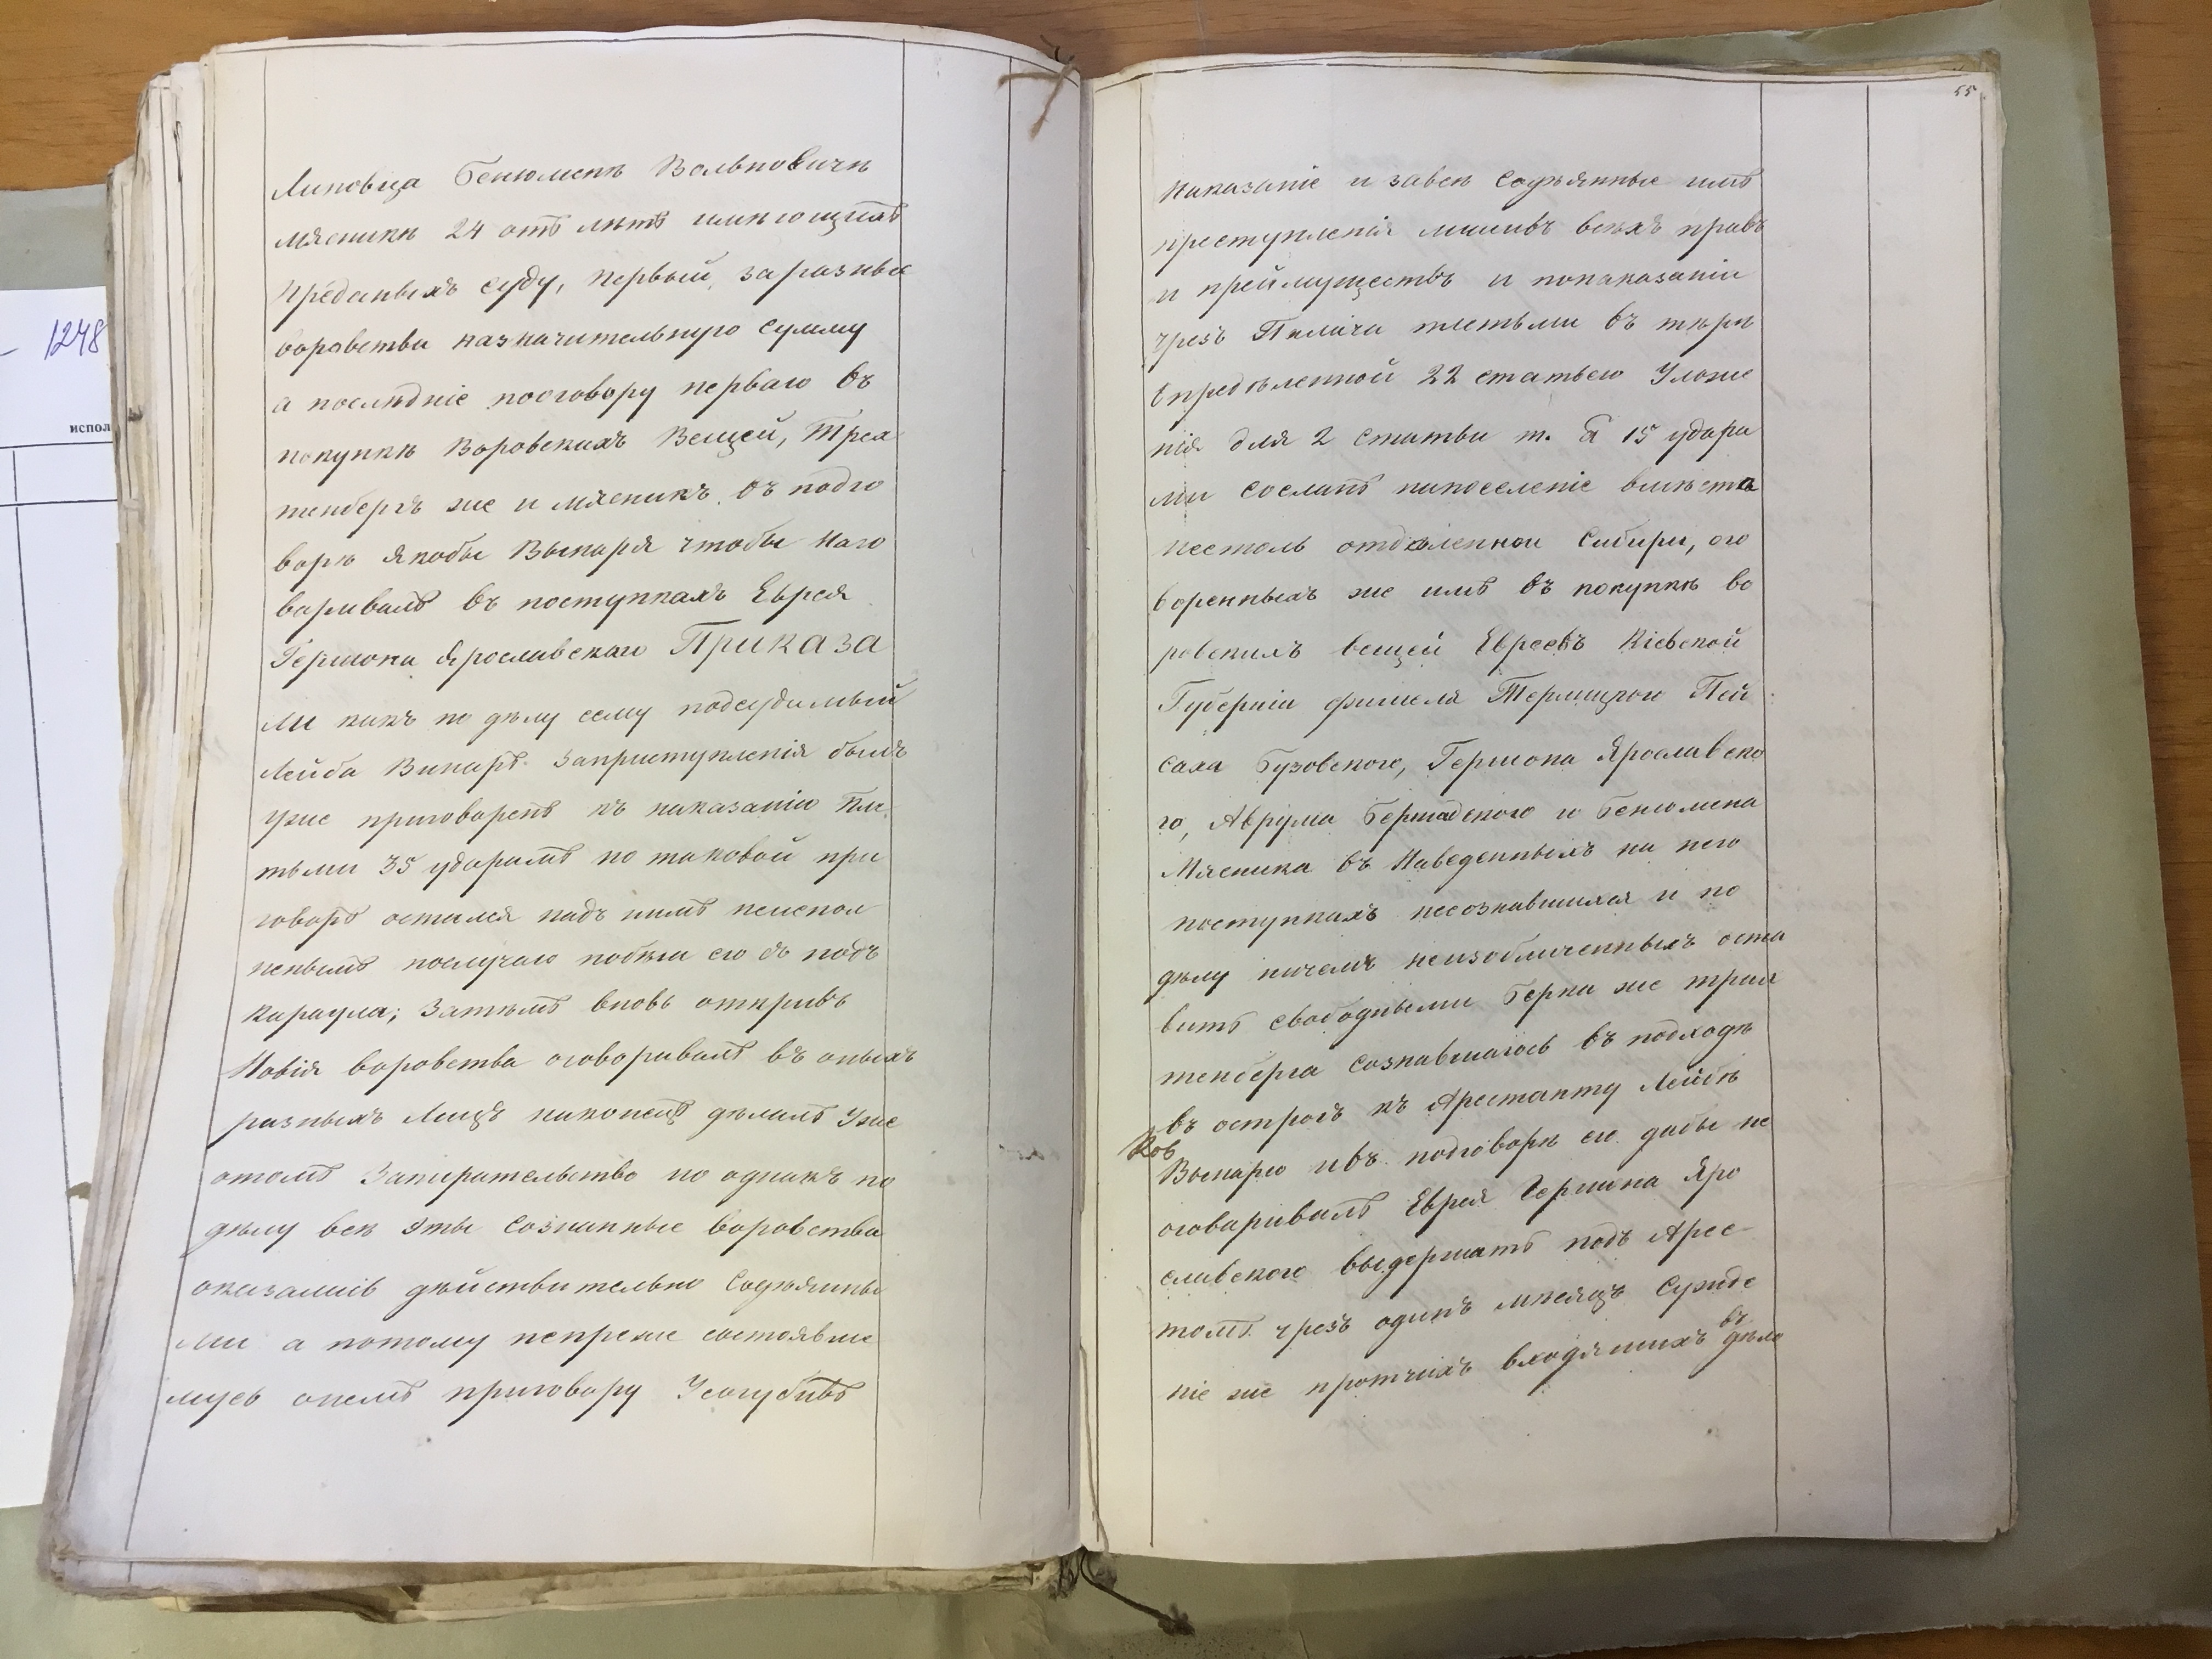 1248
испол
Липовца Бенюменъ Вольковичъ
мясникъ 24 отъ лѣтъ имѣющихъ
преданыхъ суду, первый, за разные
воровстваназначительную сумму
а послѣдніе пооговору перваго въ
покупкѣ Воровскихъ Вещей, Трах
тенбергъ же и мясникъ въ подго
ворѣ якобы Винаря чтобы Наго
варивалъ въ поступкахъ Еврея
Гершона Ярославскаго Приказа
ли какъ по дѣлу сему подсудимый
Лейба Винаръ Запреступленія былъ
уже приговоренъ къ наказанію Пле
тьми 35 ударамъ но таковой при
говоръ остался надъ нимъ неиспол
ненымъ послучаю побѣга его съ подъ
караула; Затѣмъ вновь открывъ
Новія воровства оговаривалъ въ оныхъ
разныхъ Лицъ наконецъ дѣлалъ Уже
отомъ Запирательство но однакъ по
дѣлу всѣ эты Сознанные воровства
оказались дѣйствительно Содѣянны
ми а потому непреже состоявше
муся онемъ приговору Усугубить
55
Наказаніе и завсѣ Содѣянные имъ
преступленія лишивъ всѣхъ правъ
и преймуществъ и понаказаніи
чрезъ Палача плетьми въ мѣрѣ
Определенной 22 статьею Уложе
нія для 2 статьи т. е. 15 удара
ми сослать напоселеніе вмѣста
нестоль отдаленной Сибири, ого
воренныхъ же имъ въ покупкѣ во
ровскихъ вещей Евреевъ Кіевской
Губерніи Фишеля Терлицкого Пей
саха Бузовского, Гершона Ярославско
го, Аврума Бершадского и Бенюмена
Мясника въ Наведенныхъ на него
поступкахъ несознавшихся и по
дѣлу ничемъ неизобличенныхъ оста
вить свободными Берка же трах
тенберга Сознавшагось въ подходѣ
въ острогъ къ Арестанту Лейбѣ
Ков
Винарю ивъ подговорѣ его дабы не
оговаривалъ Еврея Гершона Яро
славского выдержать подъ Арес-
томъ чрезъ одинъ мѣсяцъ Сужде
ніе же протчихъ входящихъ въ дѣло